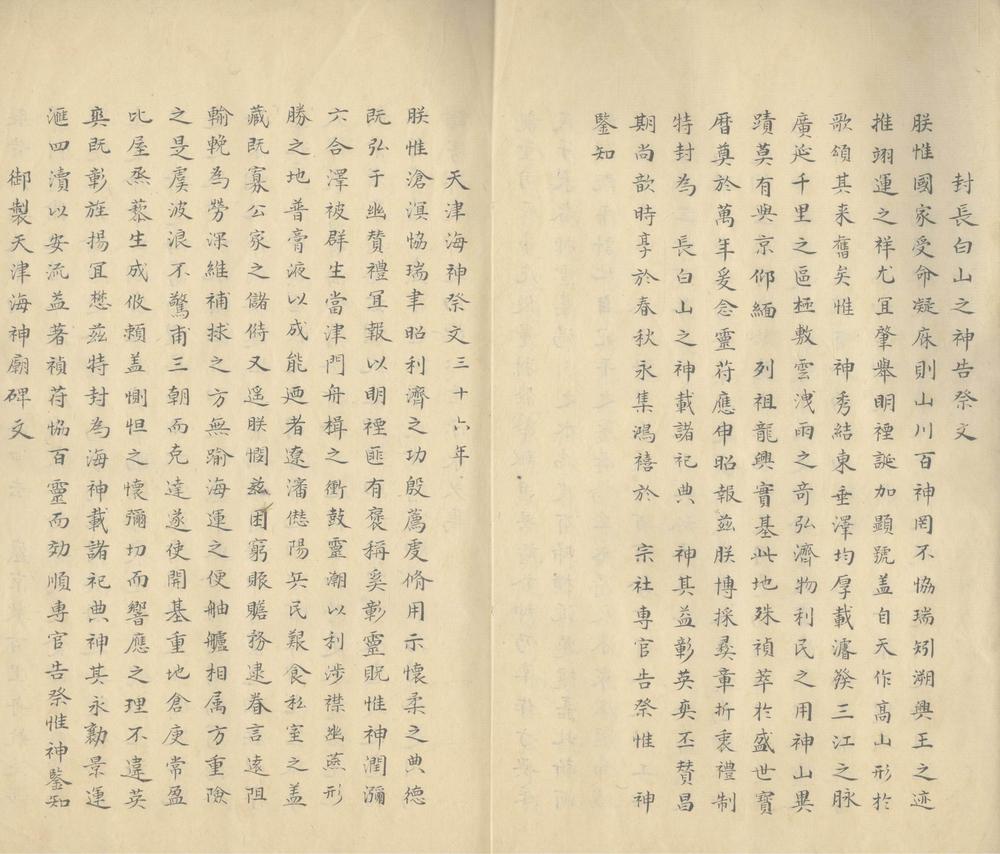 封長白山之神告祭文
朕惟國家受命凝庥則山川百神罔不恊瑞矧溯興王之迹
推翊運之祥尤宜肇舉明禋誕加顯號盖自天作髙山形於
歌頌其来舊矣惟 神秀結東垂澤均厚載濬發三江之脉
廣延千里之區極敷雲洩雨之竒弘濟物利民之用神山異
蹟莫有與京仰緬 列祖龍興實基此地殊禎萃於盛世寶
曆奠於萬年爰念靈符應申昭報兹朕博採彛章折衷禮制
特封為 長白山之神載諸祀典 神其益彰英奭丕賛昌
期尚歆時享於春秋永集鴻禧於 宗社専官告祭惟 神
鑒知
天津海神祭文三十六年
朕惟滄溟恊瑞聿昭利濟之功殷薦虔脩用示懷柔之典德
既弘于幽賛禮宜報以明禋匪有褒稱奚彰靈貺惟神潤瀰
六合澤被群生當津門舟楫之衝鼓靈潮以利涉襟幽燕形
勝之地普膏液以成能廼者遼瀋愆陽兵民艱食私室之盖
藏既寡公家之儲偫又遥朕憫兹困窮賑贍務逮眷言遠阻
輸輓為勞深維補捄之方無踰海運之便舳艫相属方重險
之是虞波浪不驚甫三朝而克達遂使開基重地倉庾常盈
比屋烝藜生成攸頼盖惻怛之懷彌切而響應之理不違英
奭既彰旌揚冝懋兹特封為海神載諸祀典神其永勷景運
滙四瀆以安流益著禎符恊百靈而効順専官告祭惟神鑒知
御製天津海神廟碑文